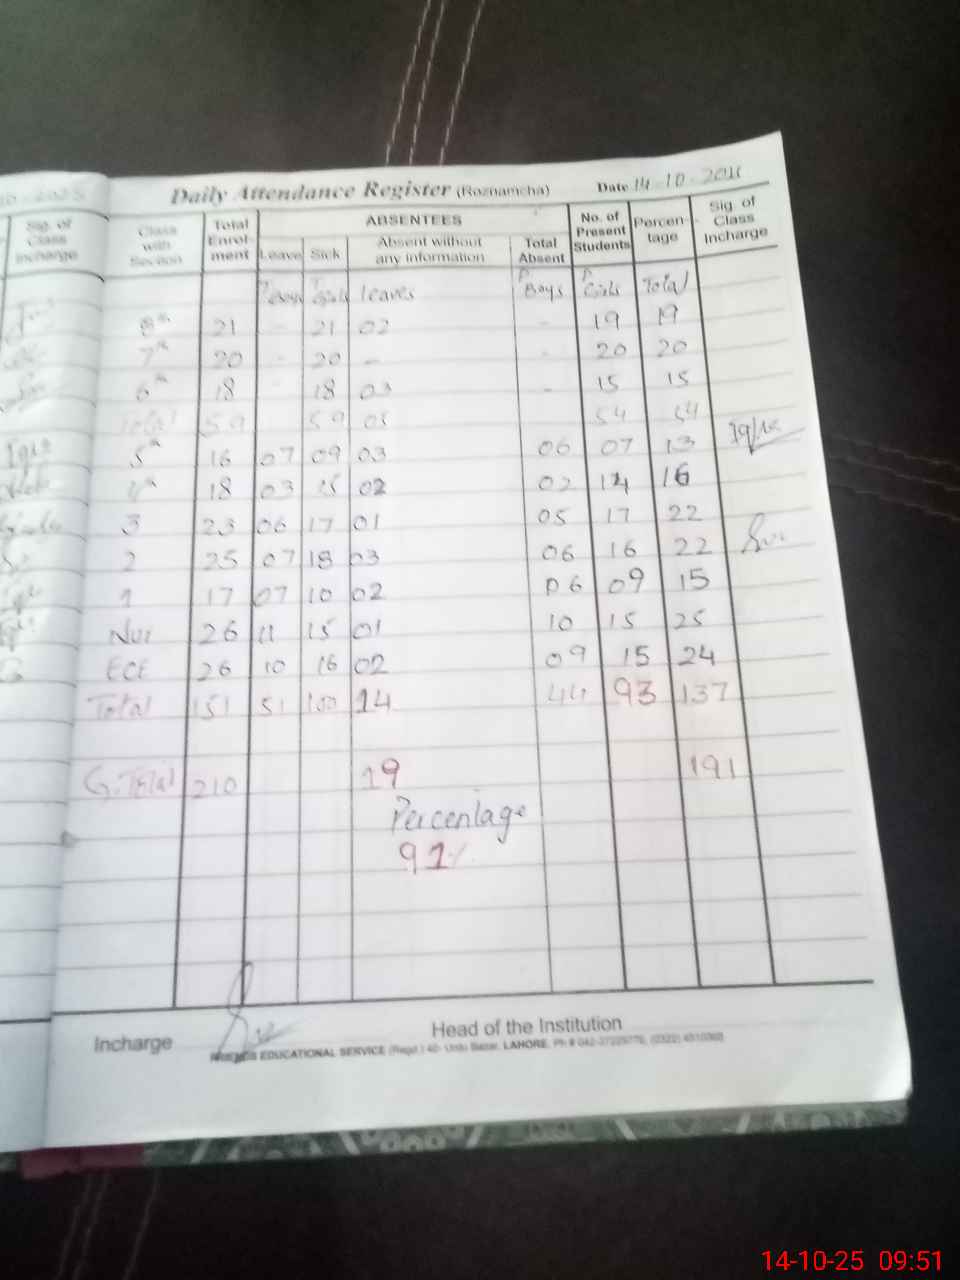 Daily Attendance Register (Roznamcha) Date 14-10-20
Sig. of Class Incharge
Class with Section Total Enrol-ment ABSENTEES No. of Present Students Percen-tage Sig. of Class Incharge
Leave Sick Absent without any information Total Absent
T Boys T Girls leaves P Boys P Girls Total
8th 21 - 21 02 - 19 19
7th 20 - 20 - - 20 20
6th 18 18 03 - 15 15
Total 59 59 05 54 54
5th 16 07 09 03 06 07 13
4th 18 03 15 02 02 14 16
3 23 06 17 01 05 17 22
2 25 07 18 03 06 16 22
1 17 07 10 02 06 09 15
Nur 26 11 15 01 10 15 25
ECE 26 10 16 02 09 15 24
Total 151 51 100 14 44 93 137
G.Total 210 19 191
Percentage
91%
Incharge Head of the Institution
EDUCATIONAL SERVICE (Regd.) LAHORE, Ph #
14-10-25 09:51